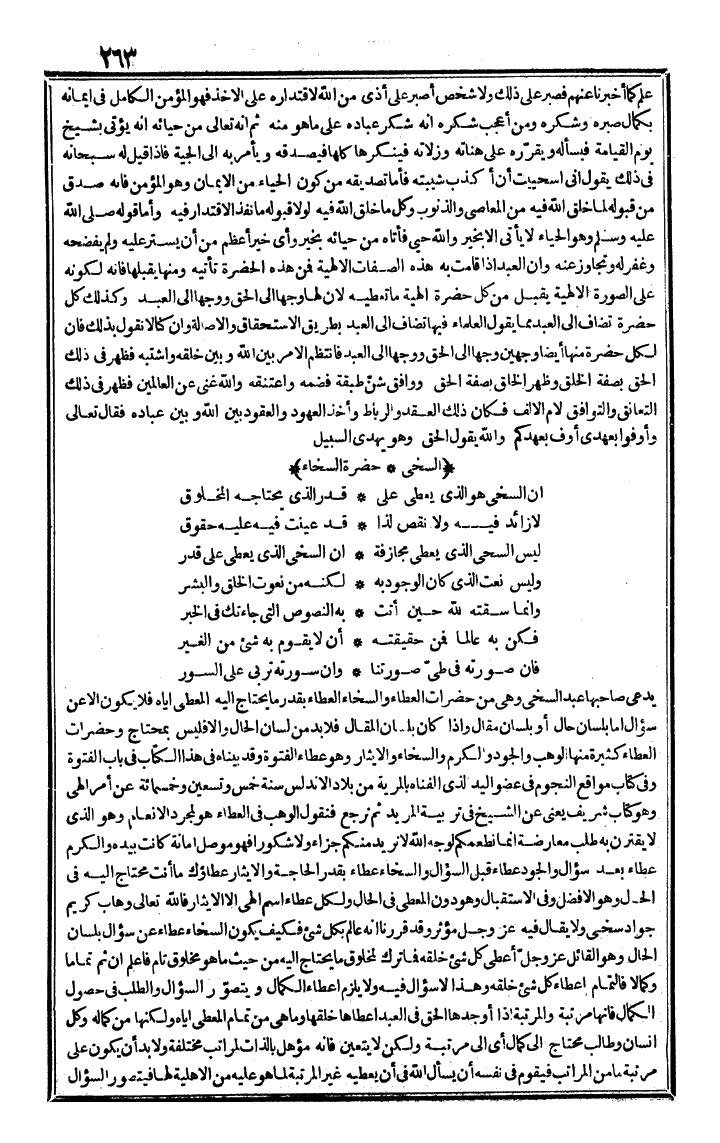 ٢٦٣
علم كما أخبرنا عنهم فصبر على ذلك ولا شخص أصبر على أذى من الله لاقتداره على الاخذ فهو المؤمن الكامل فى ايمانه
بكمال صبره وشكره ومن أعجب شكره انه شكر عباده على ما هو منه ثم انه تعالى من حيائه انه يؤتى بشيخ
يوم القيامة فيسأله ويقرّره على هناته وزلاته فينكرها كلها فيصدقه ويأمر به الى الجنة فاذا قيل له سبحانه
فى ذلك يقول انى استحييت أن أكذب شيبته فأما تصديقه من كون الحياء من الايمان وهو المؤمن فانه صدق
من قبوله لما خلق الله فيه من المعاصى والذنوب وكل ما خلق الله فيه لولا قبوله ما نفذ الاقتدار فيه وأما قوله صلى الله
عليه وسلم وهو الحياء لا يأتى الا بخير والله حيي فأتاه من حيائه بخير وأى خير أعظم من أن يستر عليه ولم يفضحه
وغفر له وتجاوز عنه وان العبد اذا قامت به هذه الصفات الالهية فمن هذه الحضرة تأتيه ومنها يقبلها فانه لكونه
على الصورة الالهية يقبل من كل حضرة الهية ما تعطيه لان لها وجها الى الحق ووجها الى العبد وكذلك كل
حضرة تضاف الى العبد مما يقول العلماء فيها تضاف الى العبد بطريق الاستحقاق والاصالة وان كنا لا نقول بذلك فان
لكل حضرة منها أيضا وجهين وجها الى الحق ووجها الى العبد فانتظم الامر بين الله وبين خلقه واشتبه فظهر فى ذلك
الحق بصفة الخلق وظهر الخلق بصفة الحق ووافق شنّ طبقة فضمه واعتنقه والله غنى عن العالمين فظهر فى ذلك
التعانق والتوافق لام الالف فكان ذلك العقد والرباط وأخذ العهود والعقود بين الله وبين عباده فقال تعالى
وأوفوا بعهدى أوف بعهدكم والله يقول الحق وهو يهدى السبيل
﴿السخى * حضرة السخاء﴾
ان السخى هو الذى يعطى على * قدر الذى يحتاجه المخلوق
لا زائد فيه ولا نقص لذا * قد عينت فيه عليه حقوق
ليس السخى الذى يعطى مجازفة * ان السخى الذى يعطى على قدر
وليس نعت الذى كان الوجود به * لكنه من نعوت الخلق والبشر
وانما سقته لله حين أتت * به النصوص التى جاءتك فى الخبر
فكن به عالما فمن حقيقته * أن لا يقوم به شئ من الغير
فان صورته فى طىّ صورتنا * وان سورته تربى على السور
يدعى صاحبها عبد السخى وهى من حضرات العطاء والسخاء العطاء بقدر ما يحتاج اليه المعطى اياه فلا يكون الا عن
سؤال اما بلسان حال أو بلسان مقال واذا كان بلسان المقال فلا بد من لسان الحال والا فليس بمحتاج وحضرات
العطاء كثيرة منها الوهب والجود والكرم والسخاء والايثار وهو عطاء الفتوة وقد بيناه فى هذا الكتاب فى باب الفتوة
وفى كتاب مواقع النجوم فى عضو اليد الذى الفناه بالمرية من بلاد الاندلس سنة خمس وتسعين وخمسمائة عن أمر الهى
وهو كتاب شريف يغنى عن الشيخ فى تربية المريد ثم نرجع فنقول الوهب فى العطاء هو لمجرد الانعام وهو الذى
لا يقترن به طلب معارضة انما نطعمكم لوجه الله لا نريد منكم جزاء ولا شكورا فهو موصل امانة كانت بيده والكرم
عطاء بعد سؤال والجود عطاء قبل السؤال والسخاء عطاء بقدر الحاجة والايثار عطاؤك ما أنت محتاج اليه فى
الحال وهو الافضل وفى الاستقبال وهو دون المعطى فى الحال ولكل عطاء اسم الهى الا الايثار فالله تعالى وهاب كريم
جواد سخى ولا يقال فيه عز وجل مؤثر وقد قررنا انه عالم بكل شئ فكيف يكون السخاء عطاء عن سؤال بلسان
الحال وهو القائل عز وجلّ أعطى كل شئ خلقه فما ترك لمخلوق ما يحتاج اليه من حيث ما هو مخلوق تام فاعلم ان ثم تماما
وكمالا فالتمام اعطاء كل شئ خلقه وهذا لا سؤال فيه ولا يلزم اعطاء الكمال ويتصوّر السؤال والطلب فى حصول
الكمال فانها مرتبة والمرتبة اذا أوجدها الحق فى العبد اعطاها خلقها وما هى من تمام المعطى اياه ولكنها من كماله وكل
انسان وطالب محتاج الى كمال أى الى مرتبة ولكن لا يتعين فانه مؤهل بالذات لمراتب مختلفة ولا بد أن يكون على
مرتبة ما من المراتب فيقوم فى نفسه أن يسأل الله فى أن يعطيه غير المرتبة لما هو عليه من الاهلية لها فيتصور السؤال